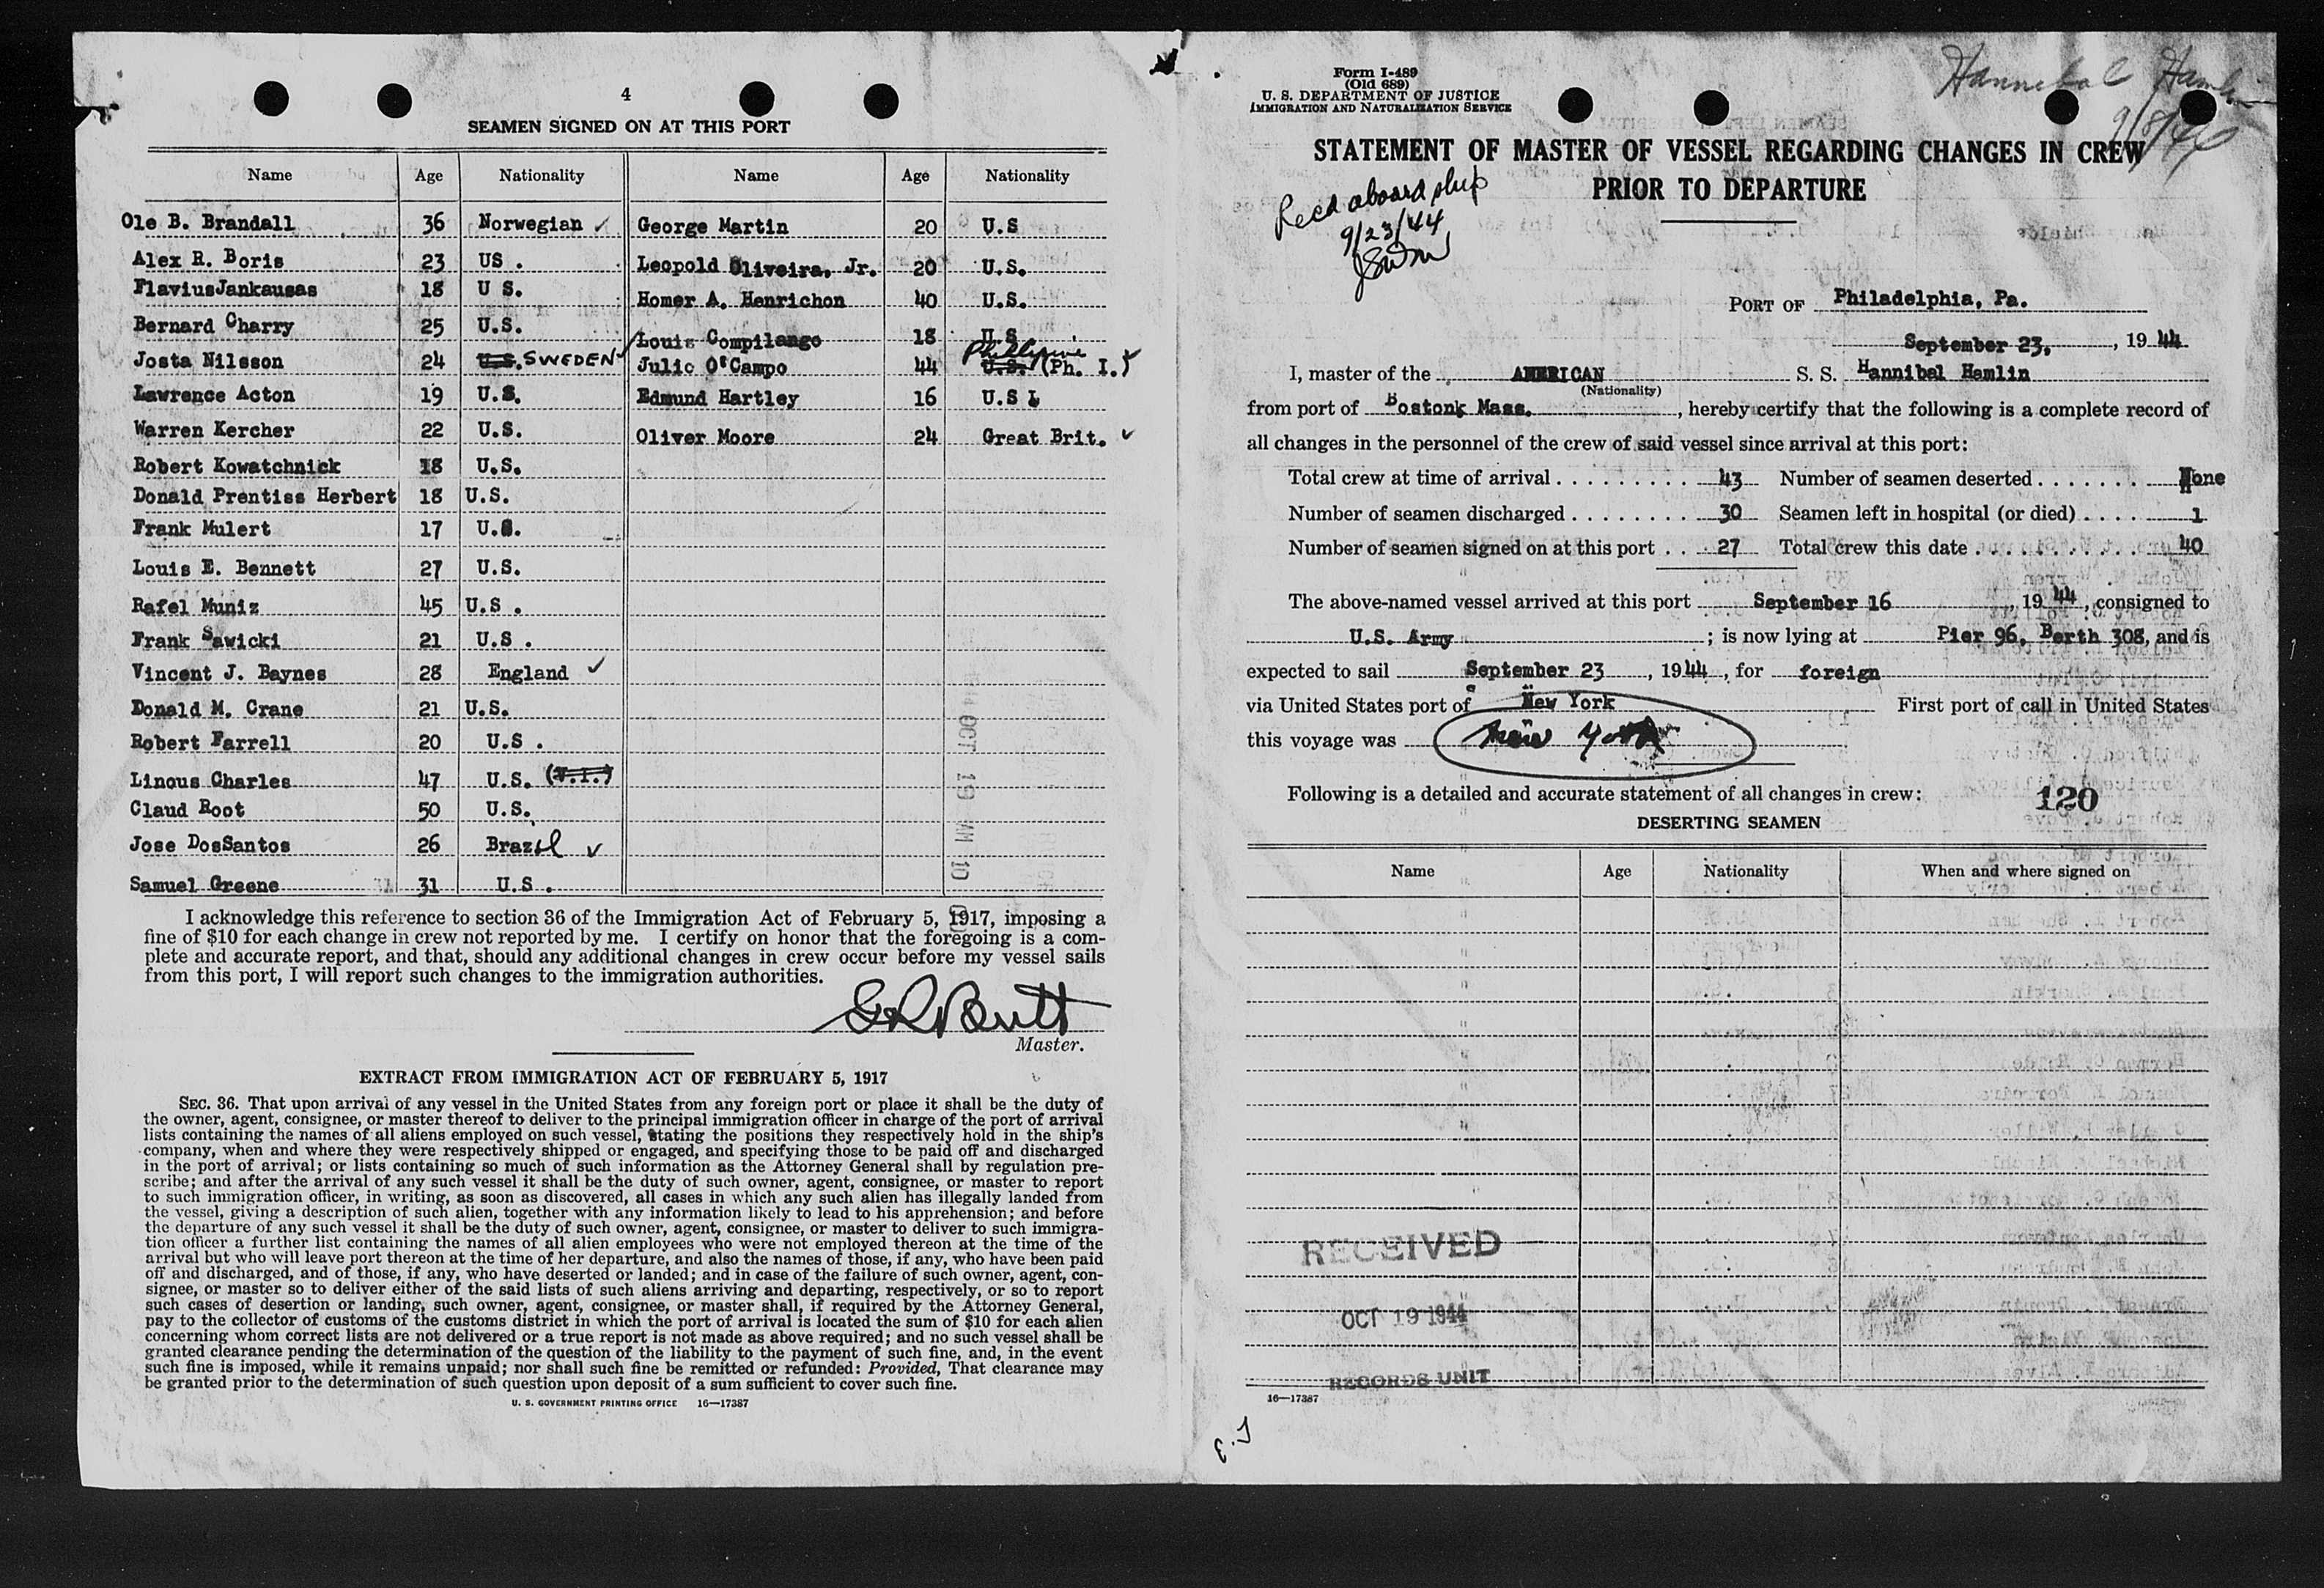 4
SEAMEN SIGNED ON AT THIS PORT
Name Age Nationality Name Age Nationality
Ole B. Brandall 36 Norwegian ✓ George Martin 20 U.S
Alex R. Boris 23 US . Leopold Oliveira, Jr. 20 U.S.
FlaviusJankausas 18 U S. Homer A. Henrichon 40 U.S.
Bernard Charry 25 U.S. Louis Compilango 18 U.S
Josta Nilsson 24 U.S. SWEDEN ✓ Julio O'Campo 44 U.S. Phillipine (Ph. I.) ✓
Lawrence Acton 19 U.S. Edmund Hartley 16 U.S
Warren Kercher 22 U.S. Oliver Moore 24 Great Brit. ✓
Robert Kowatchnick 18 U.S.
Donald Prentiss Herbert 18 U.S.
Frank Mulert 17 U.S.
Louis E. Bennett 27 U.S.
Rafel Muniz 45 U.S .
Frank Sawicki 21 U.S .
Vincent J. Baynes 28 England ✓
Donald M. Crane 21 U.S.
Robert Farrell 20 U.S .
Linous Charles 47 U.S. (V.I.)
Claud Root 50 U.S.
Jose DosSantos 26 Brazil ✓
Samuel Greene 31 U.S .
OCT 19 AM 10
I acknowledge this reference to section 36 of the Immigration Act of February 5, 1917, imposing a
fine of $10 for each change in crew not reported by me. I certify on honor that the foregoing is a com-
plete and accurate report, and that, should any additional changes in crew occur before my vessel sails
from this port, I will report such changes to the immigration authorities.
G R Butt
Master.
EXTRACT FROM IMMIGRATION ACT OF FEBRUARY 5, 1917
SEC. 36. That upon arrival of any vessel in the United States from any foreign port or place it shall be the duty of
the owner, agent, consignee, or master thereof to deliver to the principal immigration officer in charge of the port of arrival
lists containing the names of all aliens employed on such vessel, stating the positions they respectively hold in the ship's
company, when and where they were respectively shipped or engaged, and specifying those to be paid off and discharged
in the port of arrival; or lists containing so much of such information as the Attorney General shall by regulation pre-
scribe; and after the arrival of any such vessel it shall be the duty of such owner, agent, consignee, or master to report
to such immigration officer, in writing, as soon as discovered, all cases in which any such alien has illegally landed from
the vessel, giving a description of such alien, together with any information likely to lead to his apprehension; and before
the departure of any such vessel it shall be the duty of such owner, agent, consignee, or master to deliver to such immigra-
tion officer a further list containing the names of all alien employees who were not employed thereon at the time of the
arrival but who will leave port thereon at the time of her departure, and also the names of those, if any, who have been paid
off and discharged, and of those, if any, who have deserted or landed; and in case of the failure of such owner, agent, con-
signee, or master so to deliver either of the said lists of such aliens arriving and departing, respectively, or so to report
such cases of desertion or landing, such owner, agent, consignee, or master shall, if required by the Attorney General,
pay to the collector of customs of the customs district in which the port of arrival is located the sum of $10 for each alien
concerning whom correct lists are not delivered or a true report is not made as above required; and no such vessel shall be
granted clearance pending the determination of the question of the liability to the payment of such fine, and, in the event
such fine is imposed, while it remains unpaid; nor shall such fine be remitted or refunded: Provided, That clearance may
be granted prior to the determination of such question upon deposit of a sum sufficient to cover such fine.
U. S. GOVERNMENT PRINTING OFFICE 16—17387
Form I-489
(Old 689)
U. S. DEPARTMENT OF JUSTICE
IMMIGRATION AND NATURALIZATION SERVICE
Hannibal Hamlin
9/8/44
STATEMENT OF MASTER OF VESSEL REGARDING CHANGES IN CREW
PRIOR TO DEPARTURE
Recd aboard ship
9/23/44
PORT OF Philadelphia, Pa.
September 23, , 19 44
I, master of the AMERICAN S. S. Hannibal Hamlin
(Nationality)
from port of Bostonk Mass. , hereby certify that the following is a complete record of
all changes in the personnel of the crew of said vessel since arrival at this port:
Total crew at time of arrival . . . . . . . . . 43 Number of seamen deserted . . . . . . . None
Number of seamen discharged . . . . . . . . 30 Seamen left in hospital (or died) . . . . 1
Number of seamen signed on at this port . . . 27 Total crew this date . . . . . . . . . . 40
The above-named vessel arrived at this port September 16 , 19 44, consigned to
U.S. Army ; is now lying at Pier 96, Berth 308, and is
expected to sail September 23 , 1944 , for foreign
via United States port of New York First port of call in United States
this voyage was New York
Following is a detailed and accurate statement of all changes in crew: 120
DESERTING SEAMEN
Name Age Nationality When and where signed on
RECEIVED
OCT 19 1944
RECORDS UNIT
16—17387